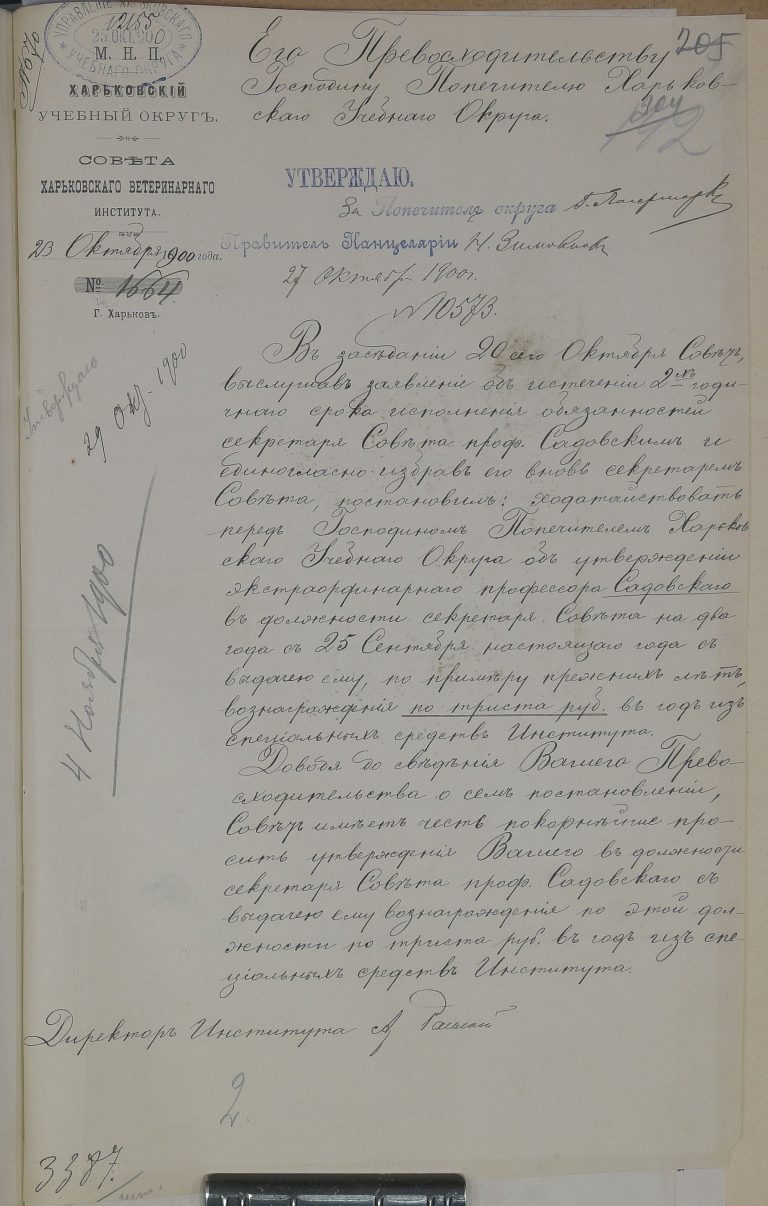 УПРАВЛЕНІЕ ХАРЬКОВСКАГО
12155
25.ОКТ.900
М. Н. П.
УЧЕБНАГО ОКРУГА
ХАРЬКОВСКІЙ
УЧЕБНЫЙ ОКРУГЪ.
СОВѢТА
ХАРЬКОВСКАГО ВЕТЕРИНАРНАГО
ИНСТИТУТА.
23 Октября 1900 года.
№ 1664.
Г. Харьковъ.
205
Его Превосходительству
Господину Попечителю Харьков-
скаго Учебнаго Округа.
112
УТВЕРЖДАЮ.
За Попечителя округа
Правитель Канцеляріи Н. Зимовновъ
27 Октября 1900 г.
№ 10573.
29 Окт. 1900
4 Ноября 1900
Въ засѣданіи 20 сего Октября Совѣтъ,
выслушавъ заявленіе объ истеченіи 2хъ годи-
чнаго срока исполненія обязанностей
секретаря Совѣта проф. Садовскимъ и
единогласно избравъ его вновь секретаремъ
Совѣта, постановилъ: ходатайствовать
передъ Господиномъ Попечителемъ Харьков
скаго Учебнаго Округа объ утвержденіи
экстраординарнаго профессора Садовскаго
въ должности секретаря Совѣта на два
года съ 25 Сентября настоящаго года съ
выдачею ему, по примѣру прежнихъ лѣтъ,
вознагражденія по триста руб. въ годъ изъ
спеціальныхъ средствъ Института.
Доводя до свѣдѣнія Вашего Прево-
сходительства о семъ постановленіи,
Совѣтъ имѣетъ честь покорнѣйше про-
сить утвержденія Вашего въ должности
секретаря Совѣта проф. Садовскаго съ
выдачею ему вознагражденія по этой дол-
жности по триста руб. въ годъ изъ спе-
ціальныхъ средствъ Института.
Директоръ Института
2.
3387.